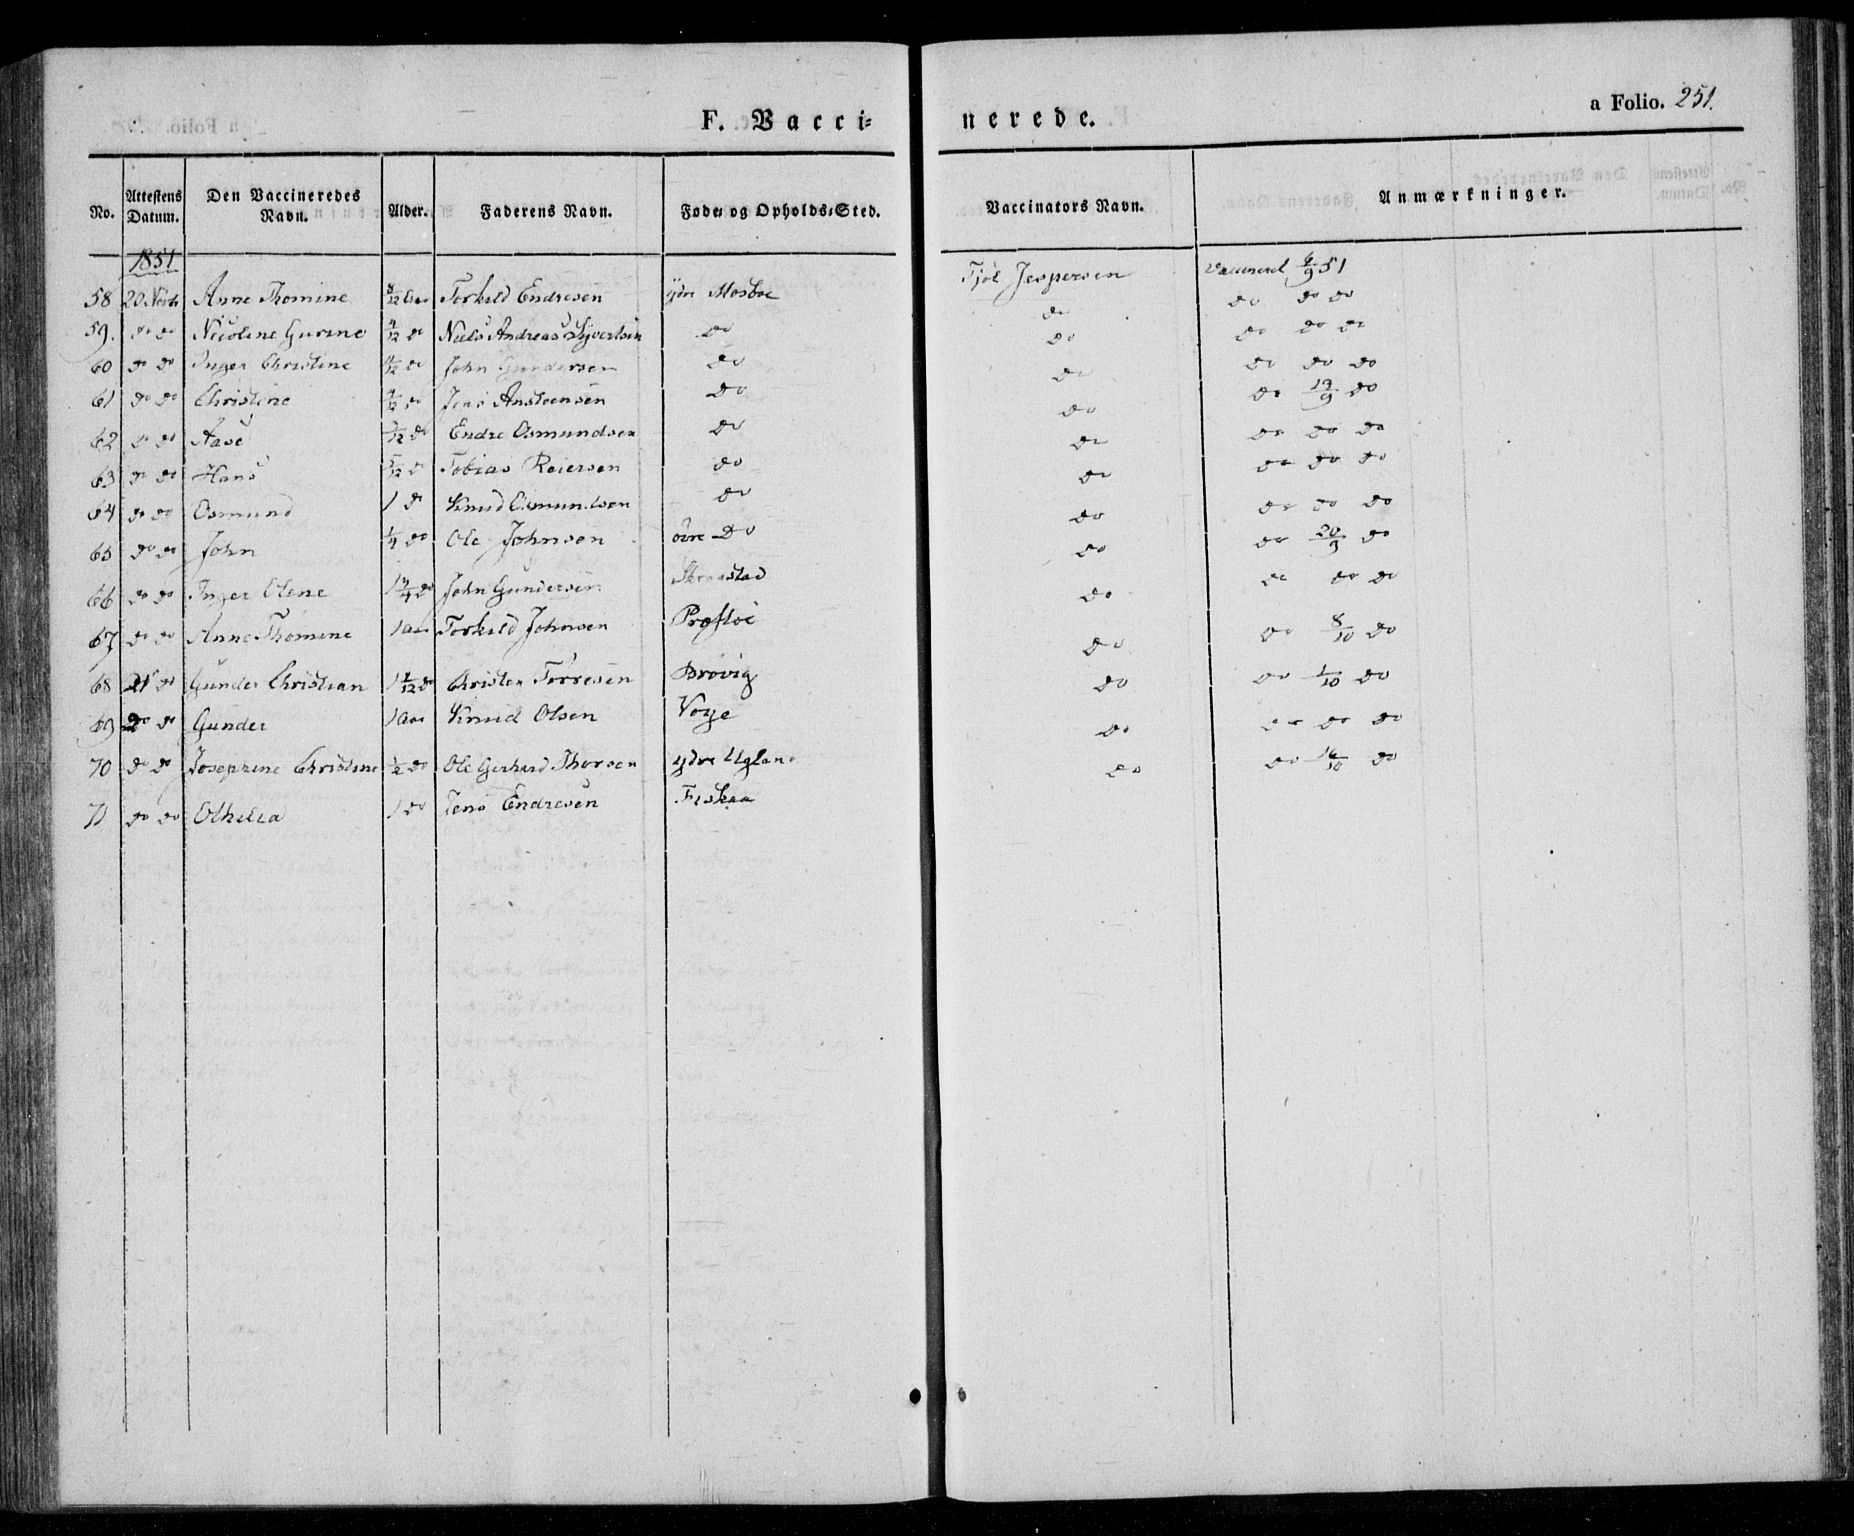 a Folio. 251.
F. Vacci= nerede.
No. | Attestens Datum. | Den Vaccineredes Navn. | Alder. | Faderens Navn. | Føde= og Opholds=Sted. | Vaccinators Navn. | Anmærkninger.
1851
58 | 20 Novbr | Anne Thomine | 8/12 Aar | Torkild Endresen | ydre Mosbøe | Fjøl Jespersen | Vaccineret 6/9 51
59. | do do | Nicoline Gurine | 4/12 do | Niels Andreas Syvertsen | do | do | do do do
60 | do do | Inger Christine | 4/12 do | John Gundersen | do | do | do do do
61 | do do | Christine | 4/12 do | Jens Ansteensen | do | do | do do do
62 | do do | Aase | 5/12 do | Endre Osmundsen | do | do | do 13/9 do
63 | do do | Hans | 5/12 do | Tobias Reiersen | do | do | do do do
64 | do do | Osmund | 1 do | Knud Osmundsen | do | do | do do do
65 | do do | John | 1/4 do | Ole Johnsen | øvre Do | do | do do do
66 | do do | Inger Olene | 1 3/4 do | John Gundersen | | do | do 20/9 do
67 | do do | Anne Thomine | 1 aar | Torkild Johnsen | Præstøe | do | do do do
68 | 21 do | Gunder Christian | 1 2/12 do | Christen Terresen | Brøvig | do | do 8/10 do
69 | do do | Gunder | 1 Aar | Knud Olsen | Voge | do | do 1/10 do
70 | do do | Josephine Christine | 1/2 do | Ole Gerhard Thorsen | ydre Ugland | do | do do do
71 | do do | Othelia | 1 do | Jens Endresen | Fiskaa | do | do 16/10 do